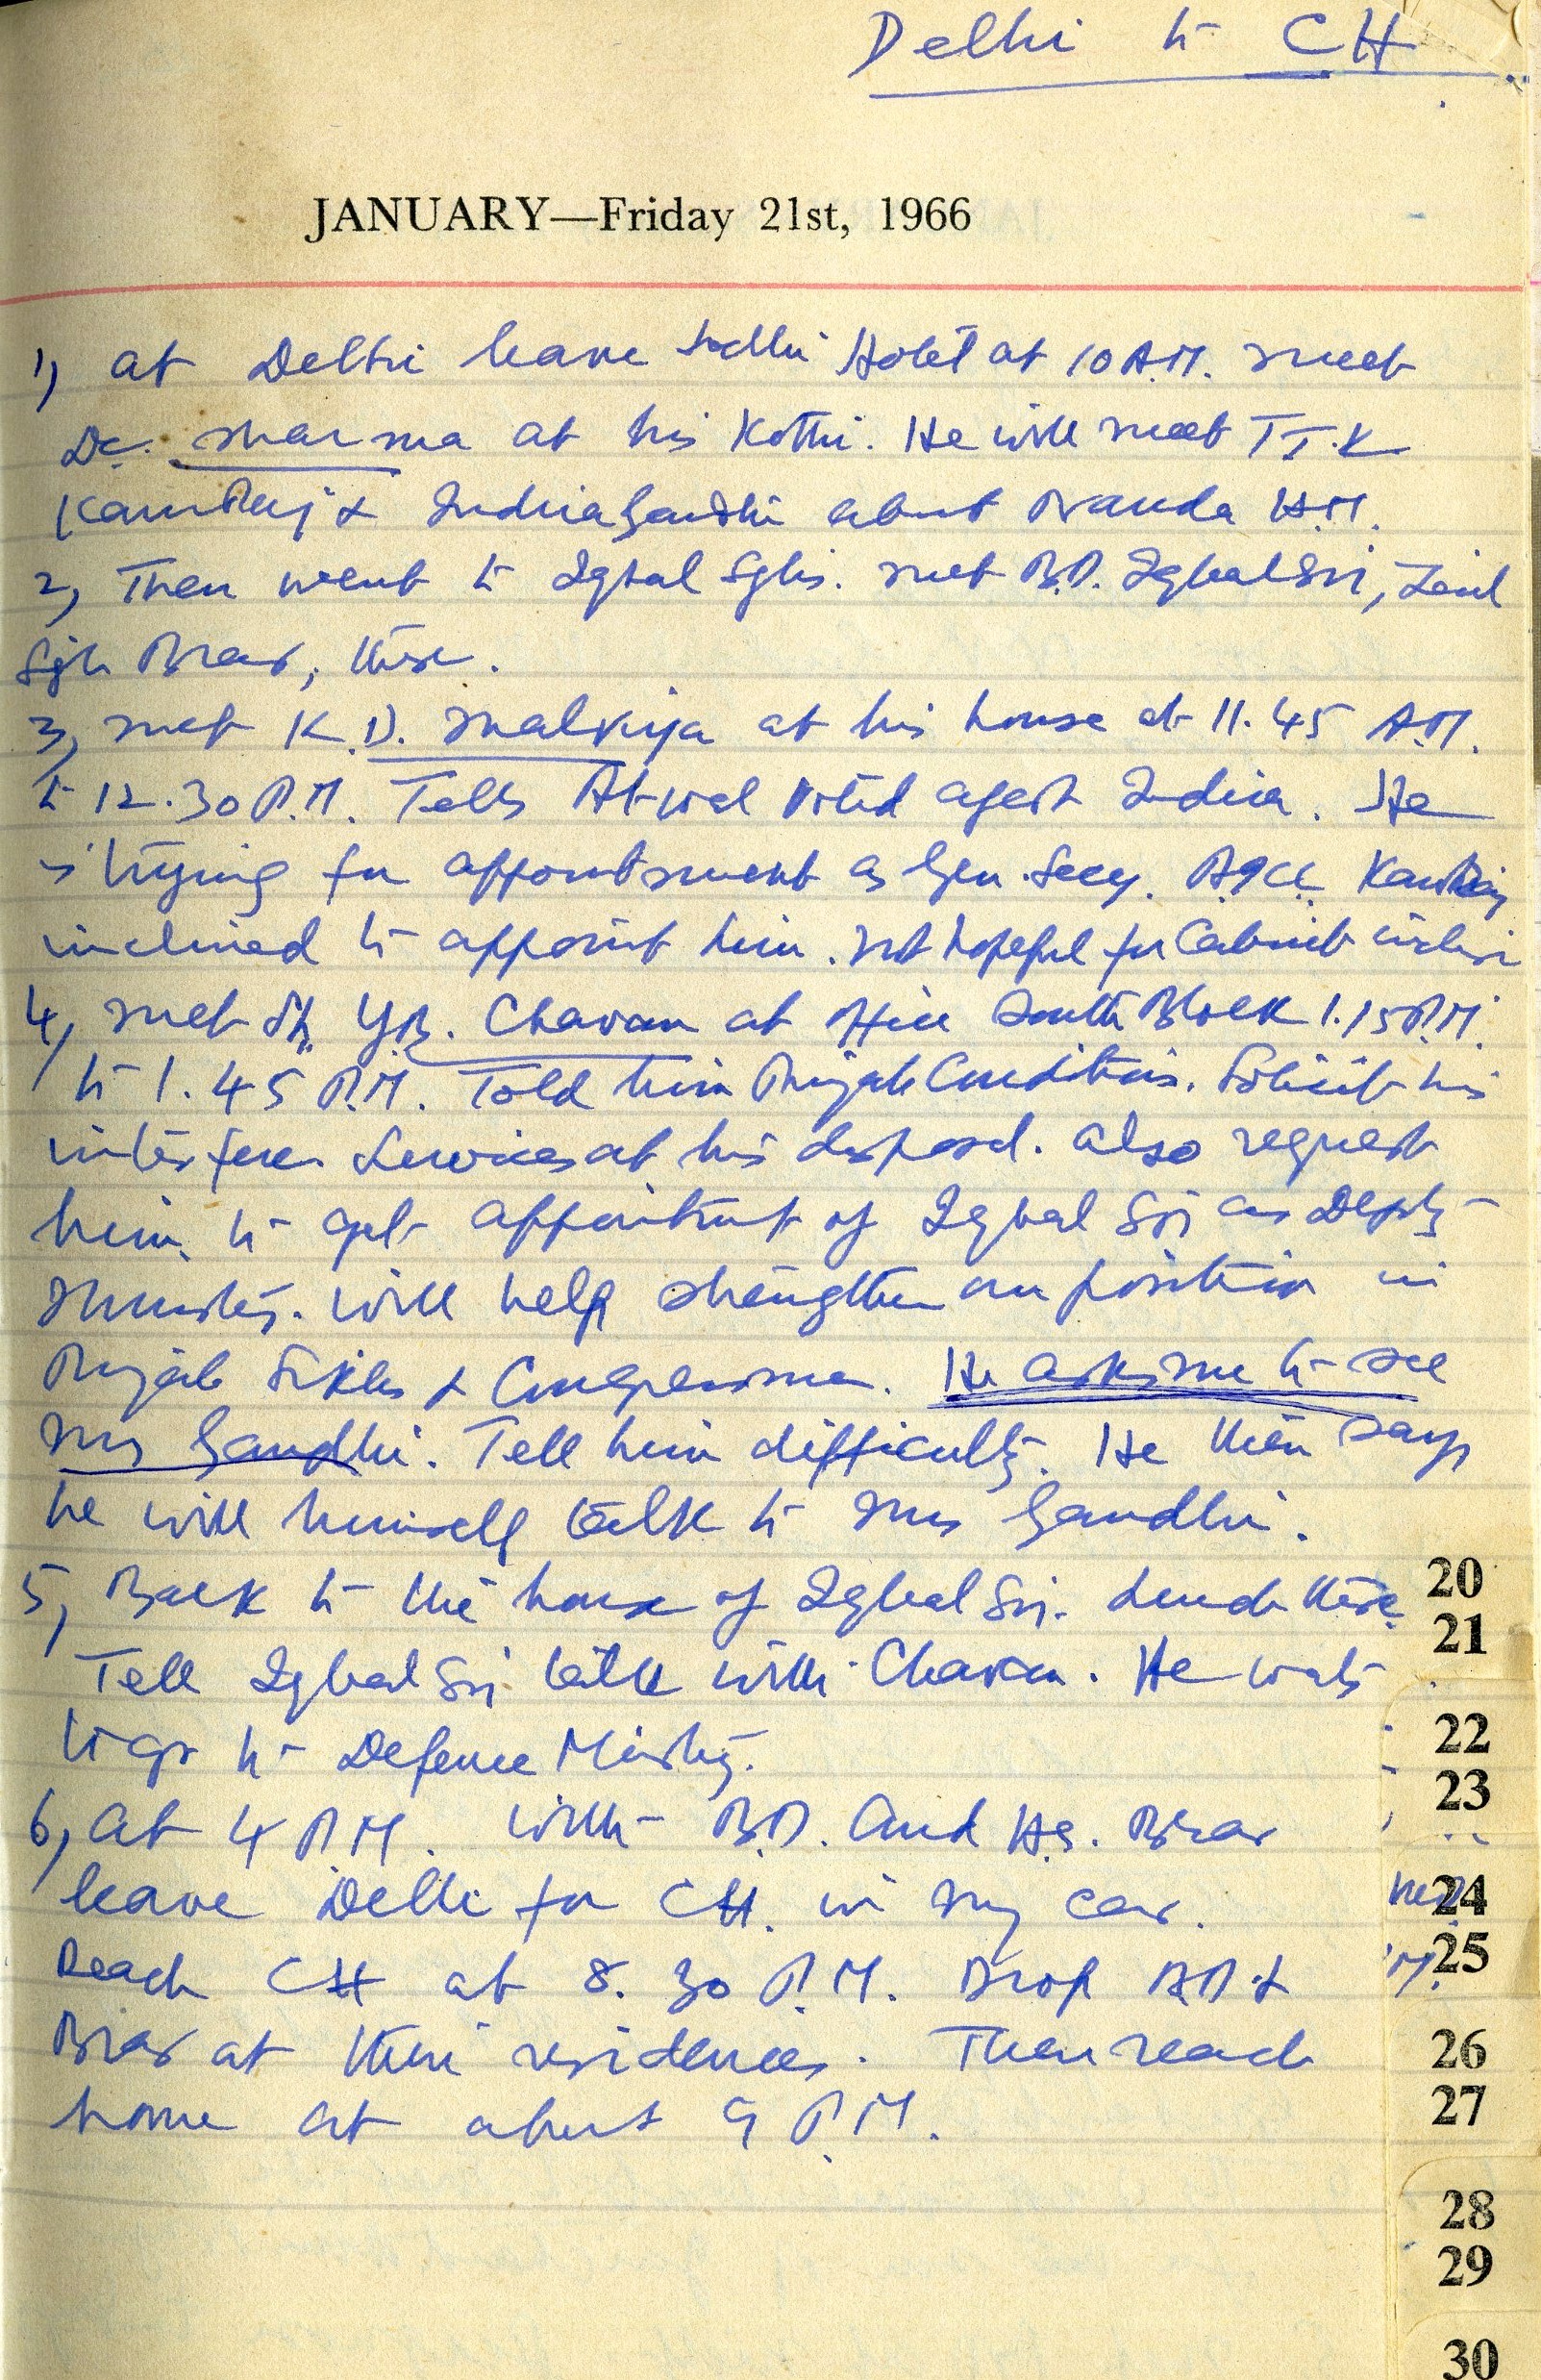 Delhi to CH
JANUARY—Friday 21st, 1966
1, at Delhi leave Hotel at 10 A.M. meet
Dr. Sharma at his Kothi. He will meet T.T.K
Kamraj & Indira Gandhi about Nanda H.M.
2, Then went to Iqbal Sghs. met B.D. Iqbal Sn,
Sgh Brar, there.
3, met K.D. Malviya at his house at 11.45 A.M.
to 12.30 P.M. Tells Atwal voted agest Indira. He
is trying for appointment as Gen. Secy. AICC Kamraj
inclined to appoint him. not hopeful for Cabinet
4, met Sh. Y.B. Chavan at Office South Block 1.15 P.M.
to 1.45 P.M. Told him Punjab Conditions. Solicit his
interferen. Services at his disposal. also request
him to get appointmt of Iqbal Sn as Depty
Minister. will help strengthen our position in
Punjab Sikhs & Congressmen. He asks me to see
Mrs Gandhi. Tell him difficulty. He then says
he will himself talk to Mrs Gandhi.
5, Back to the house of Iqbal Sn. Lunch there
Tell Iqbal Sn talk with Chavan. He wants
to go to Defence Ministry.
6, at 4 P.M. with B.D. and H.S. Brar
leave Delhi for CH. in my car.
Reach CH at 8.30 P.M. Drop B.D. &
Brar at their residences. Then reach
home at about 9 P.M.
20
21
22
23
24
25
26
27
28
29
30